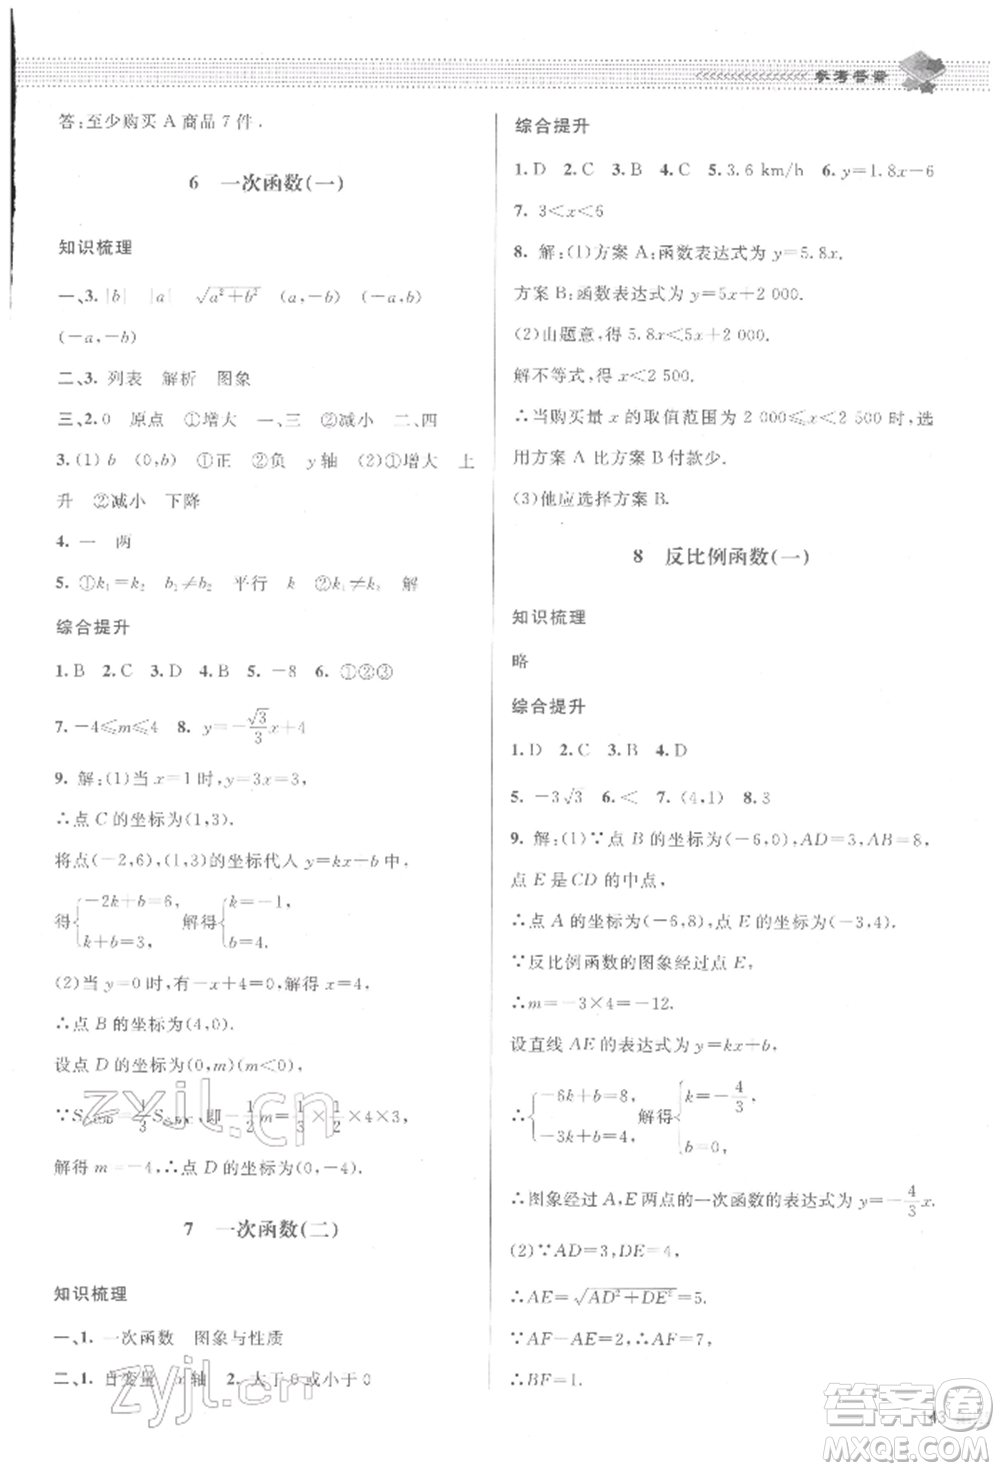 参考答案
答:至少购买 A 商品 7 件.
6 一次函数(一)
知识梳理
一、3. |b| |a| √(a²+b²) (a,-b) (-a,b)
(-a,-b)
二、3. 列表 解析 图象
三、2. 0 原点 ①增大 一、三 ②减小 二、四
3. (1) b (0,b) ①正 ②负 y 轴 (2)①增大 上
升 ②减小 下降
4. 一 两
5. ①k₁=k₂ b₁≠b₂ 平行 k ②k₁≠k₂ 解
综合提升
1. B 2. C 3. D 4. B 5. -8 6. ①②③
7. -4≤m≤4 8. y=-√3/3 x+4
9. 解:(1)当 x=1 时,y=3x=3,
∴点 C 的坐标为(1,3).
将点(-2,6),(1,3)的坐标代人 y=kx+b 中,
得{-2k+b=6, k+b=3, 解得{k=-1, b=4.
(2)当 y=0 时,有-x+4=0,解得 x=4,
∴点 B 的坐标为(4,0).
设点 D 的坐标为(0,m)(m<0),
解得 m=-4,∴点 D 的坐标为(0,-4).
7 一次函数(二)
知识梳理
一、1. 一次函数 图象与性质
二、1. 自变量 x 轴 2. 大于 0 或小于 0
综合提升
1. D 2. C 3. B 4. C 5. 3.6 km/h 6. y=1.8x-6
7. 3<x<6
8. 解:(1)方案 A:函数表达式为 y=5.8x.
方案 B:函数表达式为 y=5x+2 000.
(2)由题意,得 5.8x<5x+2 000.
解不等式,得 x<2 500.
∴当购买量 x 的取值范围为 2 000≤x<2 500 时,选
用方案 A 比方案 B 付款少.
(3)他应选择方案 B.
8 反比例函数(一)
知识梳理
略
综合提升
1. D 2. C 3. B 4. D
5. -3√3 6. < 7. (4,1) 8. 3
9. 解:(1)∵点 B 的坐标为(-6,0),AD=3,AB=8,
点 E 是 CD 的中点,
∴点 A 的坐标为(-6,8),点 E 的坐标为(-3,4).
∵反比例函数的图象经过点 E,
∴m=-3×4=-12.
设直线 AE 的表达式为 y=kx+b,
∴{-6k+b=8, -3k+b=4, 解得{k=-4/3, b=0,
∴图象经过 A,E 两点的一次函数的表达式为 y=-4/3 x.
(2)∵AD=3,DE=4,
∴AE=√(AD²+DE²)=5.
∵AF-AE=2,∴AF=7,
∴BF=1.
143
zyjl.cn
zyjl.cn
答案圈
MXQE.COM